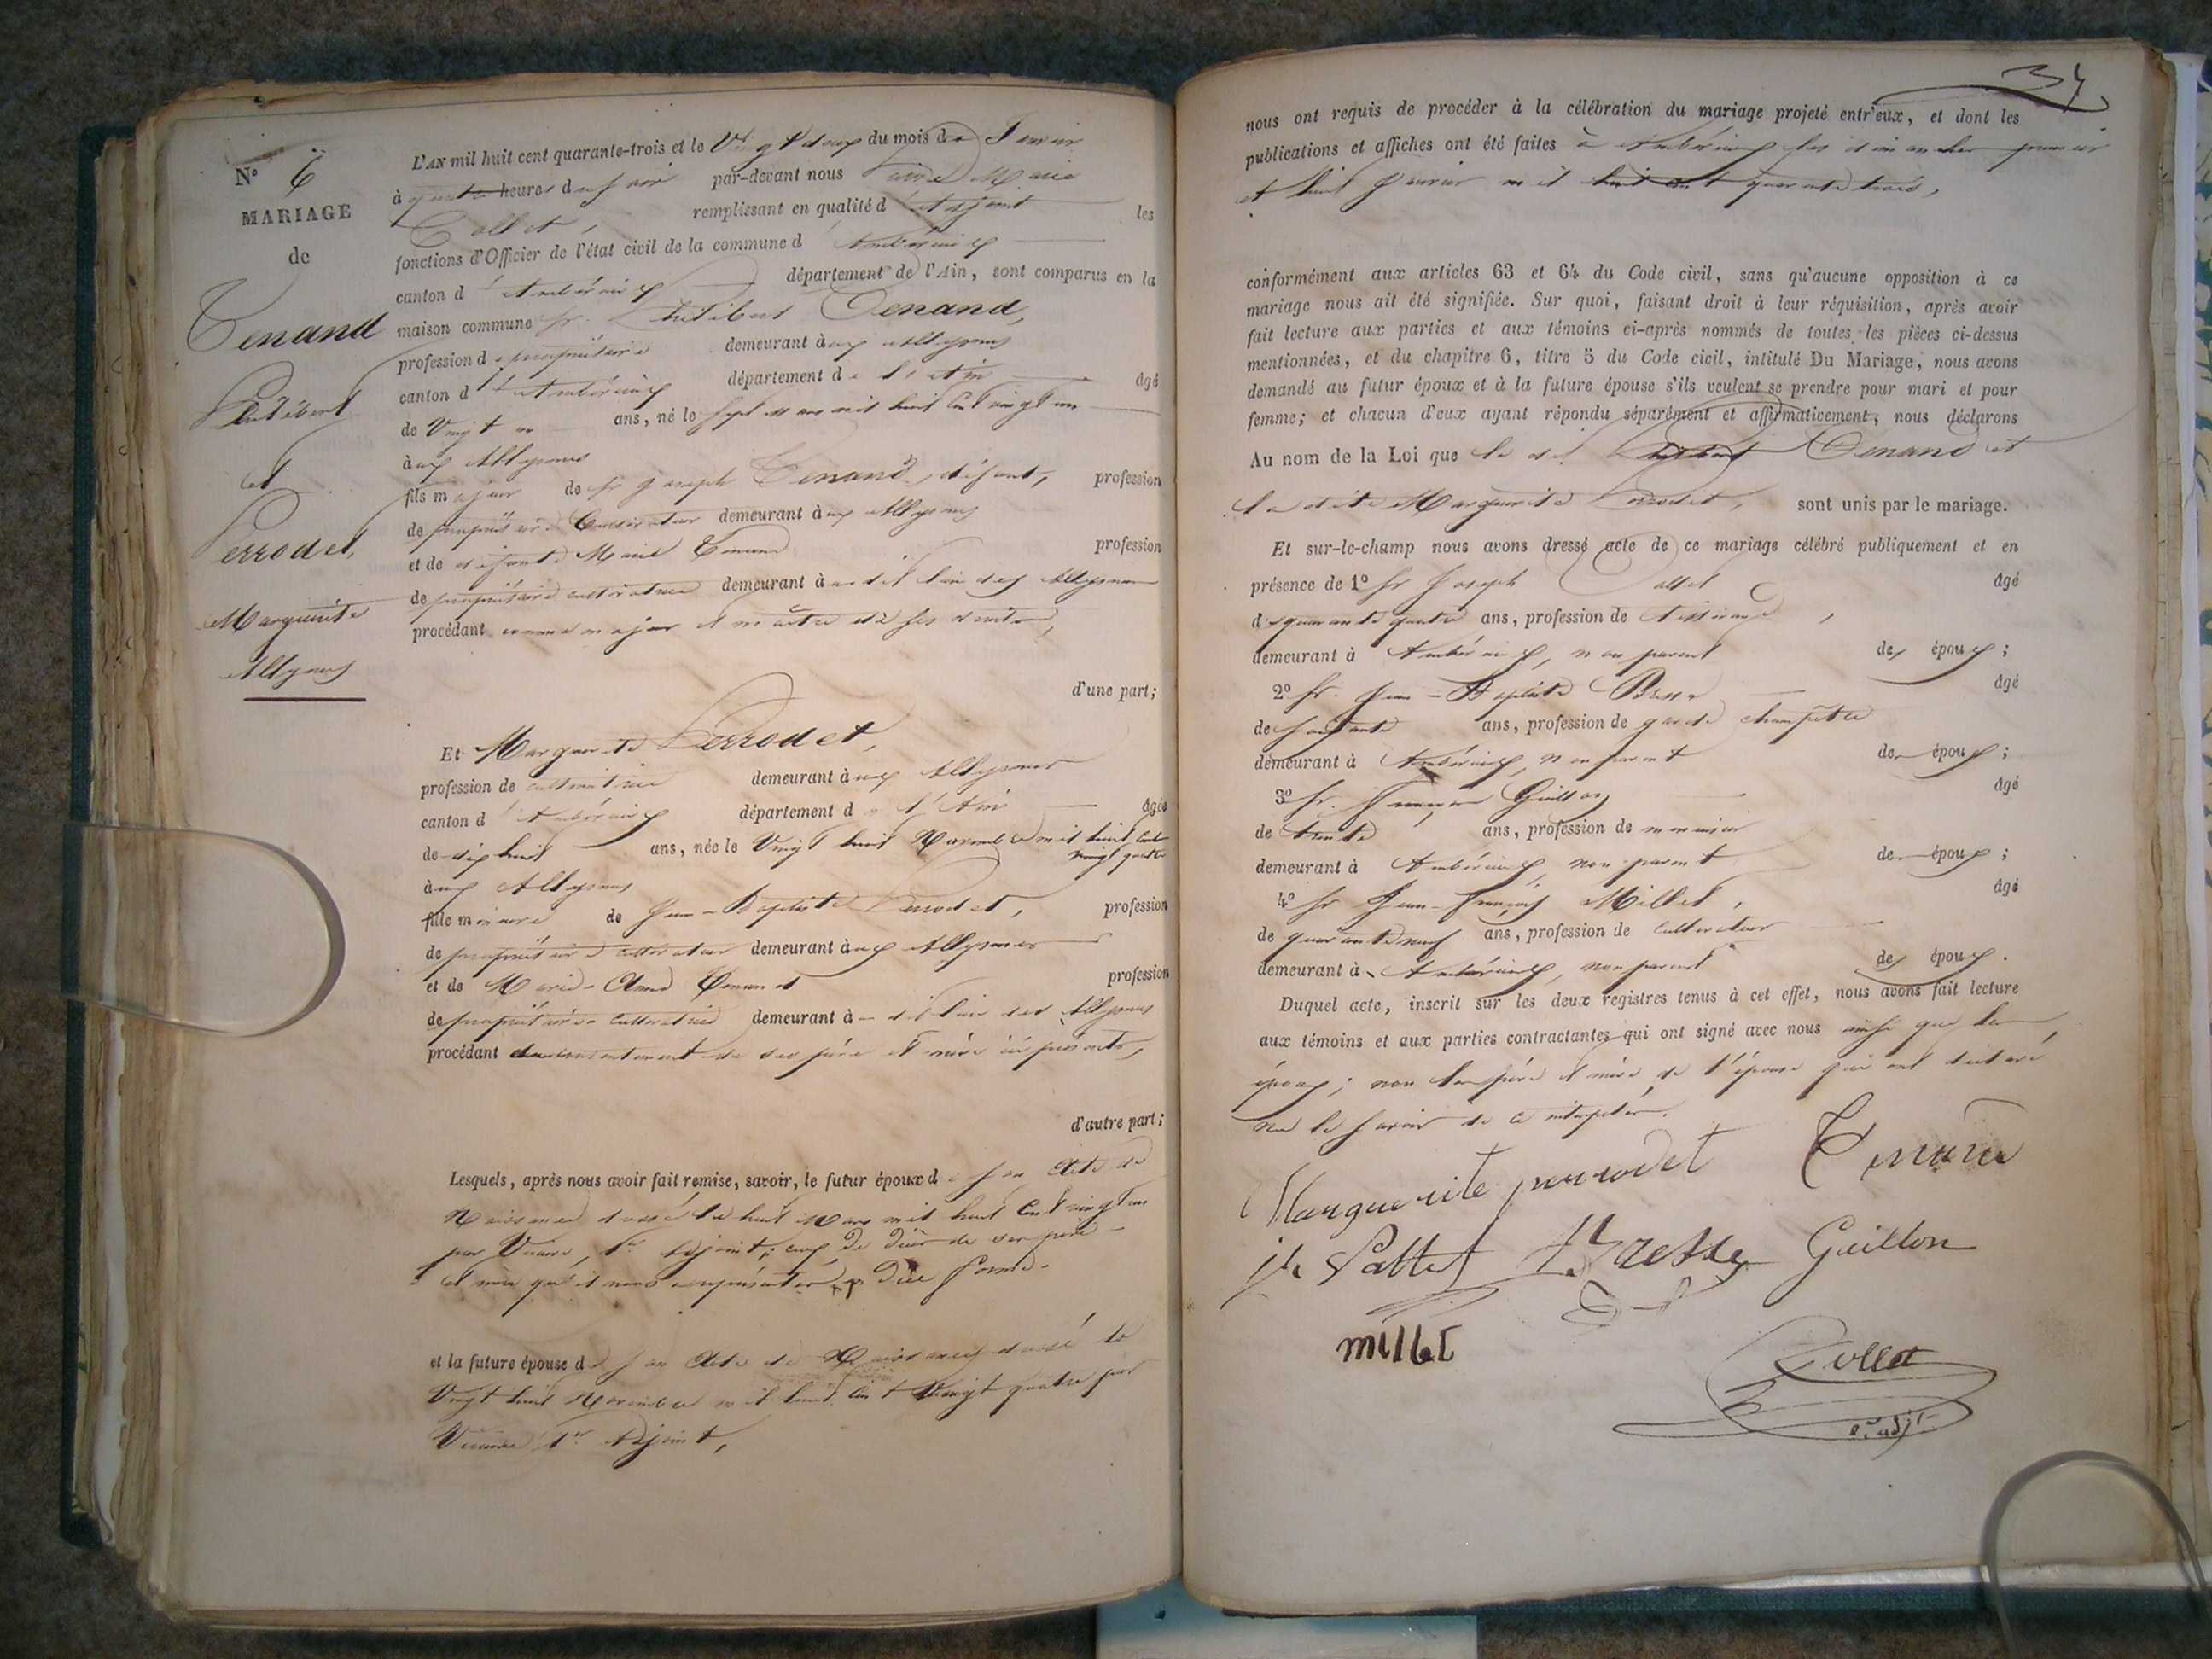 N° 6
MARIAGE
de
Tenand
Philibert
et
Perrodet,
Marguerite
Allymes
L'AN mil huit cent quarante-trois et le Vingt deux du mois de Janvier
à quatre heures du soir par-devant nous Pierre Marie
Collet, remplissant en qualité d'Adjoint les
fonctions d'Officier de l'état civil de la commune d'Ambérieux
canton d'Ambérieux département de l'Ain, sont comparus en la
maison commune sr. Philibert Tenand,
profession de propriétaire demeurant aux Allymes
canton d'Ambérieux département de l'Ain âgé
de Vingt un ans, né le sept mars mil huit cent vingt un
aux Allymes
fils majeur de sr Joseph Tenand, défunt, profession
de propriétaire Cultivateur demeurant aux Allymes
et de défunte Marie Tenand profession
de propriétaire cultivatrice demeurant à au dit lieu des Allymes
procédant comme majeur et maître de ses droits,
d'une part;
Et Marguerite Perrodet,
profession de cultivatrice demeurant aux Allymes
canton d'Ambérieux département de l'Ain âgée
de dix huit ans, née le Vingt huit Novembre mil huit cent
vingt quatre
aux Allymes
fille mineure de Jean-Baptiste Perrodet, profession
de propriétaire cultivateur demeurant aux Allymes
et de Marie-Anne Tenand profession
de propriétaire cultivatrice demeurant à au dit lieu des Allymes
procédant du consentement de ses père et mère ici présents,
d'autre part;
Lesquels, après nous avoir fait remise, savoir, le futur époux de son Acte de
Naissance dressé le huit Mars mil huit cent vingt un
par 1er Adjoint; ceux de décès de ses père
et mère qu'il nous a représentés en due forme.
et la future épouse de son Acte de Naissance dressé le
Vingt huit Novembre mil huit cent Vingt quatre par
1er Adjoint,
34
nous ont requis de procéder à la célébration du mariage projeté entr'eux, et dont les
publications et affiches ont été faites à Ambérieux les dimanches premier
et huit Janvier mil huit cent quarante trois,
conformément aux articles 63 et 64 du Code civil, sans qu'aucune opposition à ce
mariage nous ait été signifiée. Sur quoi, faisant droit à leur réquisition, après avoir
fait lecture aux parties et aux témoins ci-après nommés de toutes les pièces ci-dessus
mentionnées, et du chapitre 6, titre 5 du Code civil, intitulé Du Mariage, nous avons
demandé au futur époux et à la future épouse s'ils veulent se prendre pour mari et pour
femme; et chacun d'eux ayant répondu séparément et affirmativement, nous déclarons
Au nom de la Loi que le dit Philibert Tenand et
la dite Marguerite Perrodet, sont unis par le mariage.
Et sur-le-champ nous avons dressé acte de ce mariage célébré publiquement et en
présence de 1° sr Joseph âgé
de quarante quatre ans, profession de tisserand,
demeurant à Ambérieux, non parent des époux;
2° sr. Jean-Baptiste Bresse âgé
de soixante ans, profession de garde champêtre
demeurant à Ambérieux, non parent des époux;
3° sr. François Guillon âgé
de trente ans, profession de menuisier
demeurant à Ambérieux, non parent des époux;
4° sr Jean-François Millet, âgé
de quarante neuf ans, profession de cultivateur
demeurant à Ambérieux, non parent des époux.
Duquel acte, inscrit sur les deux registres tenus à cet effet, nous avons fait lecture
aux témoins et aux parties contractantes qui ont signé avec nous ainsi que les
époux; non les père et mère de l'épouse qui ont déclaré
ne le savoir de ce interpelés.
Marguerite perrodet Tenand
Bresse Guillon
millet
Collet
adjt